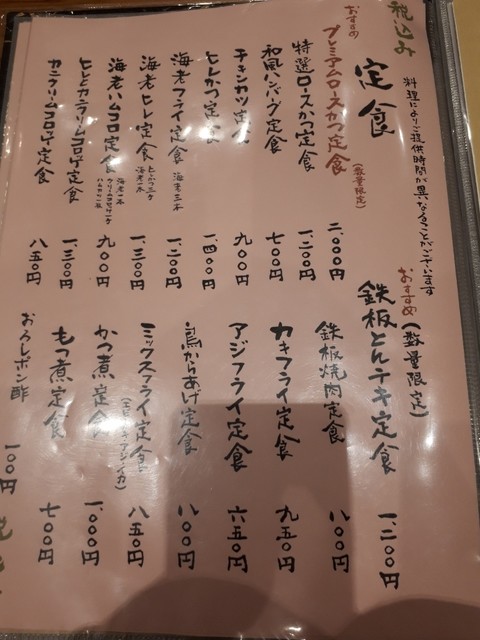 税込み
定食
料理によりご提供時間が異なることがございます
おすすめ
プレミアムロースかつ定食 (数量限定) 二、〇〇〇円
特選ロースかつ定食 一、二〇〇円
和風ハンバーグ定食 七〇〇円
チキンカツ定食 九〇〇円
ヒレかつ定食 一、四〇〇円
海老フライ定食 海老三本 一、二〇〇円
海老ヒレ定食 ヒレかつ二ケ 海老一本 一、三〇〇円
海老ハムコロ定食 海老一本 九〇〇円
ヒレとカニクリームコロッケ定食 一、三〇〇円
カニクリームコロッケ定食 八五〇円
おすすめ (数量限定)
鉄板とんテキ定食 一、二〇〇円
鉄板焼肉定食 八〇〇円
カキフライ定食 九五〇円
アジフライ定食 六五〇円
鳥からあげ定食 八〇〇円
ミックスフライ定食 八五〇円
かつ煮定食 一、〇〇〇円
もつ煮定食 七〇〇円
おろしポン酢 一〇〇円